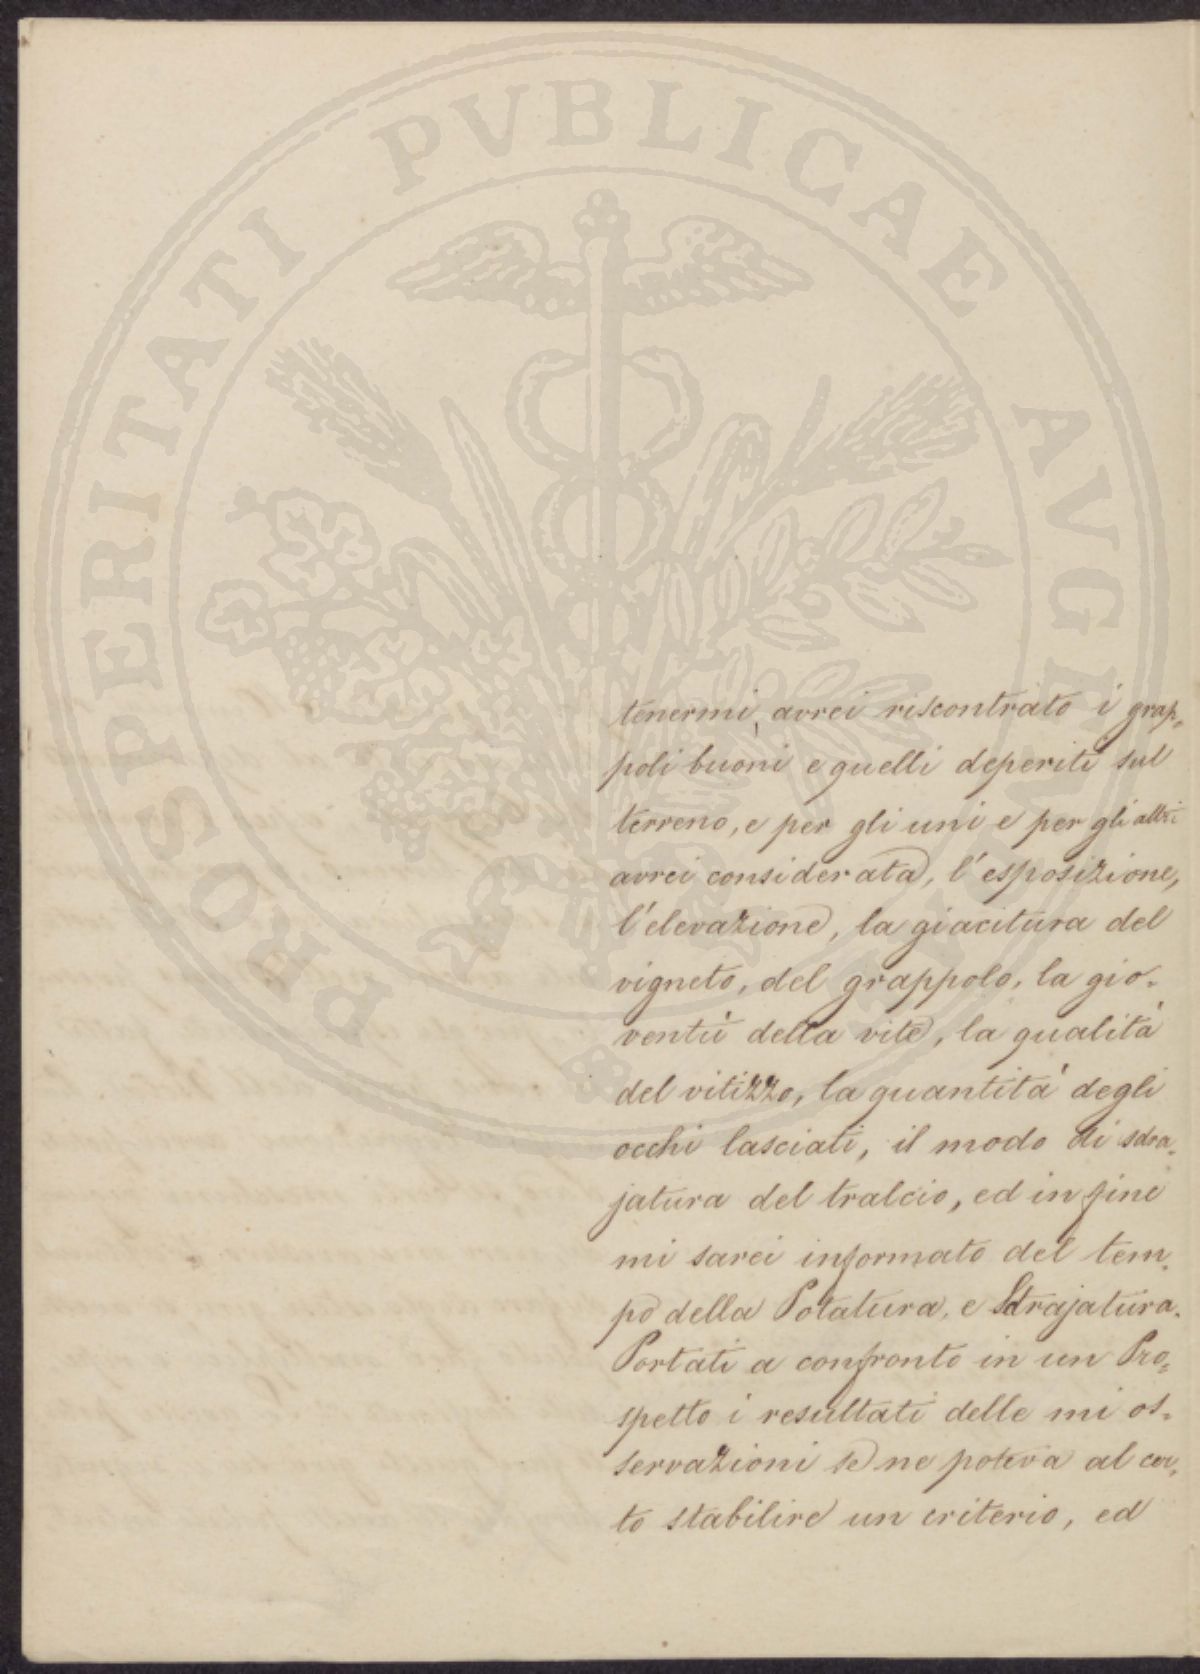 PROSPERITATI PVBLICAE AVGENDAE
tenermi, avrei riscontrato i grap=
poli buoni e quelli deperiti sul
terreno, e per gli uni e per gli altri
avrei considerata, l'esposizione,
l'elevazione, la giacitura del
vigneto, del grappolo, la gio=
ventù della vite, la qualità
del vitizzo, la quantità degli
occhi lasciati, il modo di sdra=
jatura del tralcio, ed in fine
mi sarei informato del tem=
po della Potatura, e Sdrajatura.
Portati a confronto in un Pro=
spetto i resultati delle mi os=
servazioni se ne poteva al cer=
to stabilire un criterio, ed